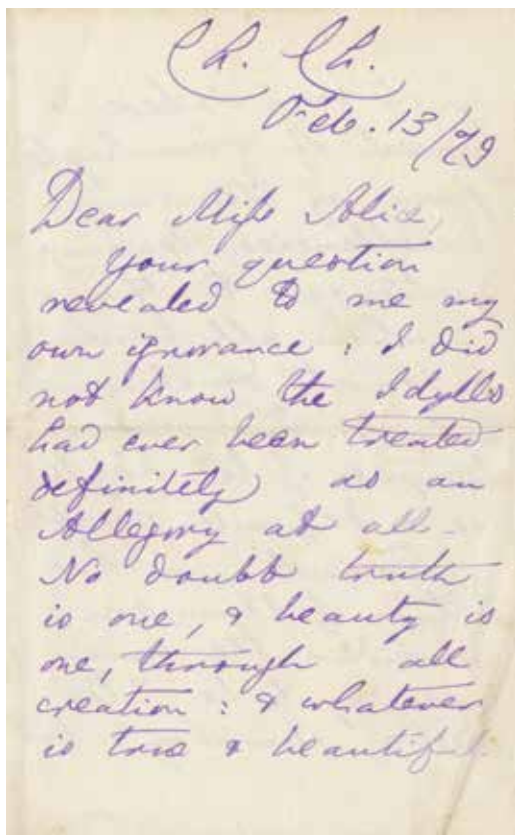 Ch. Ch.
Feb. 13/79
Dear Miss Alice,
Your question
revealed to me my
own ignorance: I did
not know the Idylls
had ever been treated
definitely as an
Allegory at all.
No doubt truth
is one, & beauty is
one, through all
creation: & whatever
is true & beautiful